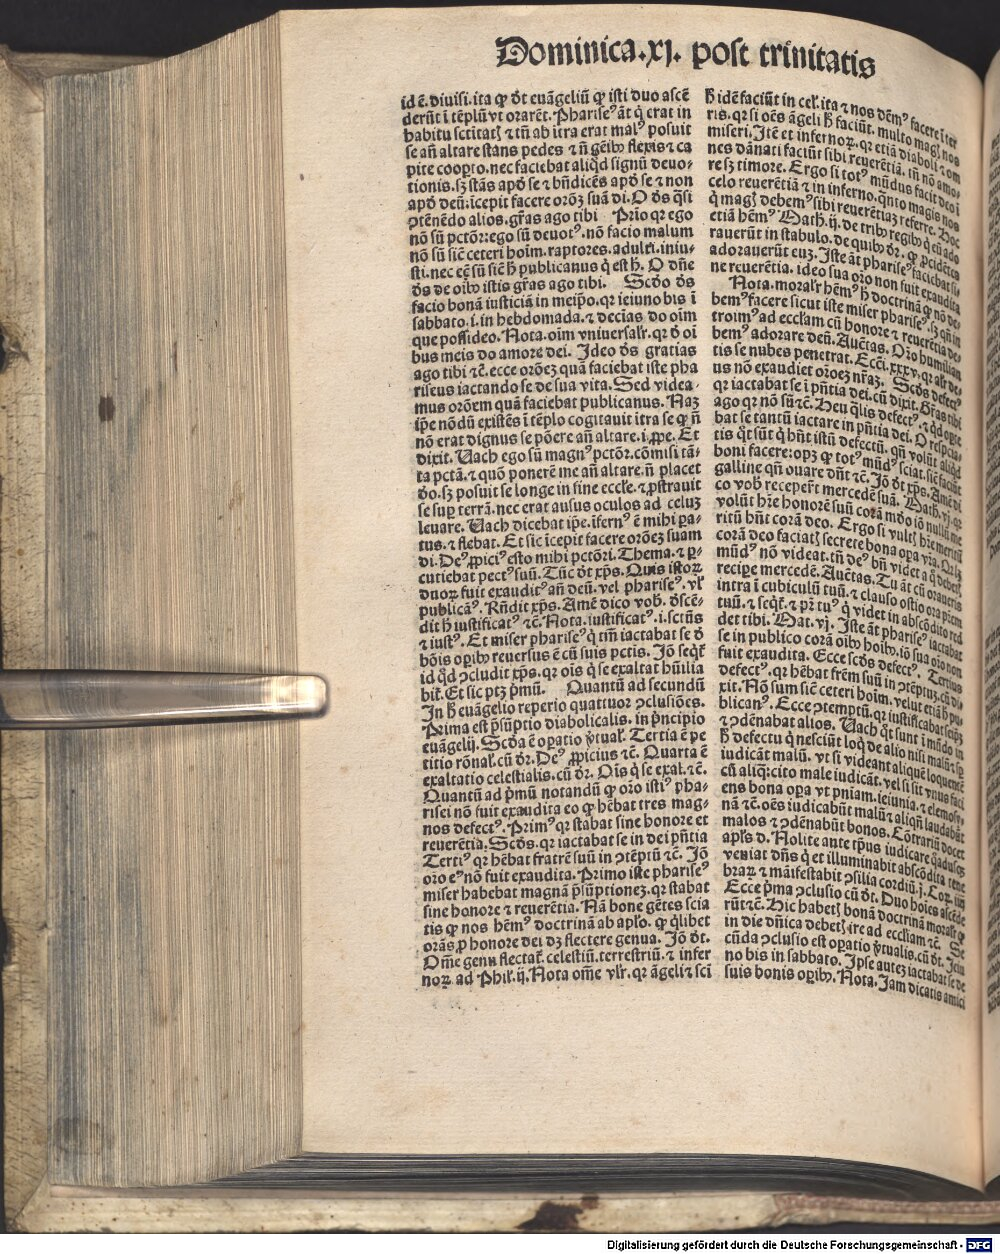 Dominica.xj. post trinitatis
id ē. diuisi. ita ꝙ dt̄ euāgeliū ꝙ isti duo ascē
derūt ī tēplū vt orarēt. Phariseꝰ āt q̇ erat in
habitu sctitatꝭ ⁊ tn̄ ab ītra erat malꝰ posuit
se an̄ altare stans pedes ⁊ n̄ gēibꝰ flexis ⁊ ca
pite coopto. nec faciebat aliqd signū deuo-
tionis. sꝫ stās apd se ⁊ bn̄dicēs apd se ⁊ non
apd deū: īcepit facere orōꝫ suā di. O ds̄ q̄si
ↄtēnēdo alios. gr̄as ago tibi Prīo qꝛ ego
nō sū pctōꝛ: ego sū deuotꝰ. nō facio malum
nō sū sic̄ ceteri hoīm. raptores. adulti. iniu-
sti. nec eē sū sic̄ ħ publicanus q̇ est ħ. O dn̄e
ds̄ de oībꝰ istis gr̄as ago tibi. Scdo ds̄
facio bonā iusticiā in meipo. qꝛ ieiuno bis ī
sabbato. i. in hebdomada. ⁊ decias do oim
que possideo. Nota. oim vniuersalr. qꝛ d̄ oi
bus meis do amore dei. Ideo ds̄ gratias
ago tibi ⁊c̄. ecce orōeꝫ quā faciebat iste pha
riseus iactando se de sua vita. Sed videa-
mus orōem quā faciebat publicanus. Naꝫ
ip̄e nōdū existēs ī tēplo cogitauit itra se ꝙ n̄
nō erat dignus se pōere an̄ altare. i. ꝓpe. Et
dixit. Uach ego sū magnꝰ pctōꝛ. cōmisi tā-
ta pctā. ⁊ quō ponerē me an̄ altare. n̄ placet
do. sꝫ posuit se longe in fine eccle. ⁊ ꝓstrauit
se sup terrā. nec erat ausus oculos ad celuꝫ
leuare. Uach dicebat ip̄e. īfernꝰ ē mihi pa-
tus. ⁊ flebat. Et sic īcepit facere orōeꝫ suam
di. Deꝰ ꝓpiciꝰ esto mihi pctōri. Thema. ⁊ p-
cutiebat pectꝰ suū. Tūc dt̄ xp̄s. Quis istoꝝ
duoꝝ fuit exauditꝰ an̄ deū. vel phariseꝰ. vl̄
publicāꝰ. Rn̄dit xp̄s. Amē dico vob. dscē-
dit ħ iustificatꝰ ⁊c̄. Nota. iustificatꝰ. i. sctūs
⁊ iustꝰ. Et miser phariseꝰ q̇ tm̄ iactabat se d̄
bōis opibꝰ reuersus ē cū suis pctis. Iō seqt̄
id qd ↄcludit xp̄s. qꝛ ois q̇ se exaltat hūilia
bit̄. Et sic ptꝫ pmū. Quantū ad secundū
In ħ euāgelio reperio quattuor ↄclusiōes.
Prima est psūptio diabolicalis. in pncipio
euāgelij. Scda ē opatio vtual̄. Tertia ē pe
titio rōnal̄. cū dr̄. Deꝰ ꝓpicius ⁊c̄. Quarta ē
exaltatio celestialis. cū dr̄. Ois q̇ se exal. ⁊c̄.
Quantū ad pmū notandū ꝙ oro istiꝰ pha-
risei nō fuit exaudita eo ꝙ hēbat tres mag-
nos defectꝰ. Primꝰ qꝛ stabat sine honore et
reuerētia. Scds̄. qꝛ iactabat se in dei pn̄tia
Tertiꝰ qꝛ hēbat fratrē suū in ↄtēptū ⁊c̄. Iō
oro eꝰ nō fuit exaudita. Primo iste phariseꝰ
miser habebat magnā psūptioneꝫ. qꝛ stabat
sine honore ⁊ reuerētia. Nā bone gētes scia
tis ꝙ nos hēmꝰ doctrinā ab aplo. ꝙ qlibet
orās ꝓ honore dei dꝫ flectere genua. Iō dt̄.
Ome genu flectat̄. celestiū. terrestriū. ⁊ infer
noꝝ. ad Phil. ij. Nota ome vl̄r. qꝛ āgeli ⁊ sci
ħ idē faciūt in cel̄. ita ⁊ nos dēmꝰ facere ī ter
ris. qꝛ si oēs āgeli ħ faciūt. multo magꝭ nos
miseri. Itē et infernoꝝ. qꝛ etiā diaboli ⁊ om
nes dānati faciūt sibi reuerētiā. tn̄ nō amo-
re sꝫ timore. Ergo si totꝰ mūdus facit deo ī
celo reuerētiā ⁊ in inferno. qnto magis nos
q̇ magꝭ debemꝰ sibi reuerētiaꝫ referre. Hoc
etiā hēmꝰ Math. ij. de tribꝰ regibꝰ q̇ eū ado
rauerūt in stabulo. de quibꝰ dr̄. ꝙ pcidētes
adorauerūt euꝫ. Iste āt phariseꝰ faciebat si-
ne reuerētia. ideo sua oro non fuit exaudita
Nota. moralr hēmꝰ ħ doctrinā ꝙ nō de-
bemꝰ facere sicut iste miser phariseꝰ. sꝫ qn̄ in
troimꝰ ad eccłam cū honore ⁊ reuerētia de-
bemꝰ adorare deū. Auc̄tas. Oro humilian
tis se nubes penetrat. Ecci. xxxv. qꝛ alr de-
us nō exaudiet oroeꝫ nr̄aꝫ. Scds̄ defectꝰ
qꝛ iactabat se ī pn̄tia dei. cū dixit. Gr̄as tibi
ago qꝛ nō sū ⁊c̄. Heu qlis defectꝰ. ⁊ qd opꝫ
bat se tantū iactare in pn̄tia dei. O
tis qt̄ sūt q̇ hn̄t istū defectū. qn̄ volūt aliqd
boni facere: opꝫ ꝙ totꝰ mūdꝰ sciat. sic̄ faciūt
galline qn̄ ouare dn̄t ⁊c̄. Iō dt̄ xp̄s. Amē di
co vob receperūt mercedē suā. Math. vj. qꝛ
volūt hr̄e honorē suū corā mdo iō nullū me
ritū hn̄t corā deo. Ergo si vultꝭ hr̄e meritū
corā deo faciatꝭ secrete bona opa vra. Qꝫ
mūdꝰ nō videat. tn̄ deꝰ bn̄ videt a q̇ debetꝭ
recipe mercedē. Auc̄tas. Tu āt cū oraueris
intra ī cubiculū tuū. ⁊ clauso ostio ora prem
tuū. ⁊ seqt̄. ⁊ pr̄ tuꝰ q̇ videt in abscōdito red
det tibi. Mat. vj. Iste āt phariseꝰ iactabat
se in publico corā oībꝰ hoībꝰ. iō sua oro non
fuit exaudita. Ecce scds̄ defectꝰ. Tertius
defectꝰ. qꝛ hēbat frēm suū in ↄtēptuꝫ. cū di-
xit. Nō sum sic̄ ceteri hoim. velut etiā ħ pu
blicanꝰ. Ecce ↄtemptū. qꝛ iustificabat seipꝫ
⁊ ↄdēnabat alios. Uach qt̄ sunt ī mūdo in
ħ defectu q̇ nesciūt loq̇ de alio nisi malū ⁊ sp
iudicāt malū. vt si videant aliquē loquentē
cū aliq: cito male iudicāt. vel si sit vnus faci
ens bona opa vt pniam. ieiunia. ⁊ elemosy-
nā ⁊c̄. oēs iudicabūt malū ⁊ aliqn̄ laudabūt
malos ⁊ ↄdēnabūt bonos. Cōtrariū docet
apl̄s d. Nolite ante tpus iudicare qadusqꝫ
veniat dn̄s q̇ et illuminabit abscōdita tene
braꝝ ⁊ māifestabit ↄsilia cordiū. j. Coꝝ. iiij
Ecce pma ↄclusio cū dt̄. Duo hoies ascēde
rūt ⁊c̄. Hic habetꝭ bonā doctrinā moralr ꝙ
in die dn̄ica debetꝭ ire ad eccłiam ⁊c̄. Se
cūda ↄclusio est opatio vtualis. cū dt̄. Ieiu
no bis in sabbato. Ipse auteꝫ iactabat se de
suis bonis opibꝰ. Nota. Iam dicatis amici
Digitalisierung gefördert durch die Deutsche Forschungsgemeinschaft - DFG